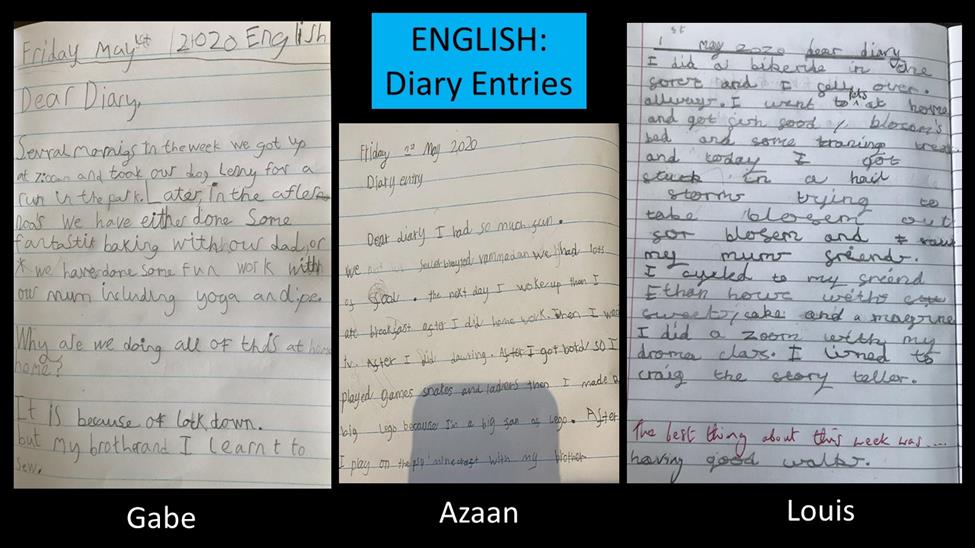 ENGLISH:
Diary Entries
Friday May 1st 2020 English
Dear Diary,
Several mornigs in the week we got up
at 7:00am and took our dog Leny for a
run in the park. Later, in the after
noons we have either done Some
fantastic baking with our dad, or
* we have done some fun work with
our mum including yoga and pe.
Why are we doing all of this at home
home?
It is because of lock down.
but my brother and I learnt to
sew.
Gabe
Friday 1st May 2020
Diary entry
Dear diary I had so much fun.
We rammadan we had lots
of food. the next day I woke up than I
ate breakfast after I did home work. Then I
tv. After I did dawing. After I got botd so I
played games snakes and ladders then I made a
big lego because I'm a big fan of lego. After
I play on the ps4 minecraft with my brother
Azaan
1st may 2020 dear diary
I did a bikeride in the
forest and I felly over.
allways. I went to pets at home
and got fish food / blosom's
bed and some traning treats
and today I got
stuck in a hail
storm trying to
take blosem out
for blosem and I
my mums friends.
I cycled to my friend
Ethan house withs
sweets, cake and a magazine
I did a zoom withy my
drama class. I lisned to
craig the story teller.
The best thing about this week was ...
having good walks.
Louis